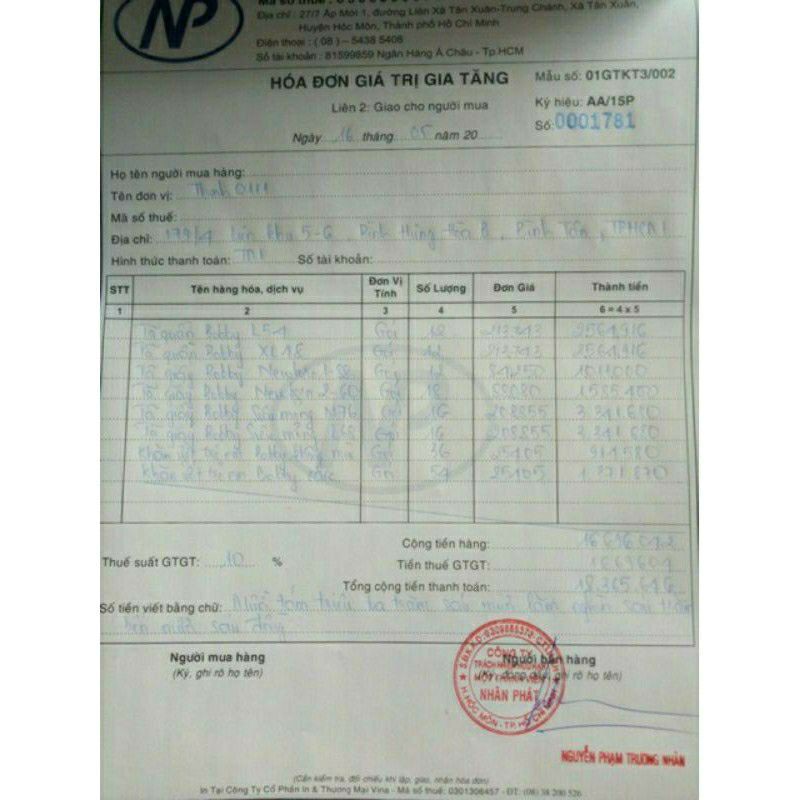 NP
Mã số thuế:
Địa chỉ : 27/7 Ấp Mới 1, đường Liên Xã Tân Xuân-Trung Chánh, Xã Tân Xuân,
Huyện Hóc Môn, Thành phố Hồ Chí Minh
Điện thoại : ( 08 ) – 5438 5408
Số tài khoản : 81599859 Ngân Hàng Á Châu - Tp.HCM
HÓA ĐƠN GIÁ TRỊ GIA TĂNG
Mẫu số: 01GTKT3/002
Liên 2: Giao cho người mua
Ký hiệu: AA/15P
Số: 0001781
Ngày 16 tháng 05 năm 20
Họ tên người mua hàng:
Tên đơn vị:
Mã số thuế:
Địa chỉ: 179/4 liên khu 5-6, Bình Hưng Hòa B, Bình Tân, TPHCM
Hình thức thanh toán: TM Số tài khoản:
STT Tên hàng hóa, dịch vụ Đơn Vị Tính Số Lượng Đơn Giá Thành tiền
1 2 3 4 5 6 = 4 x 5
Tã quần Bobby L54 Gói 12 213743 2564916
Tã quần Bobby Gói 12 213743 2564916
Tã giấy Bobby Newborn Gói 12
Tã giấy Bobby Newborn 2-60 Gói 18 88080 1585440
Tã giấy Bobby Siêu mỏng M76 Gói 16 208855 3.341.680
Tã giấy Bobby Siêu mỏng L68 Gói 16 208855 3.341.680
Khăn ướt trẻ em Bobby Gói 36 25405 914580
Khăn ướt trẻ em Bobby Gói 54 25405 1.371.870
Cộng tiền hàng:
Thuế suất GTGT: 10 % Tiền thuế GTGT: 1669604
Tổng cộng tiền thanh toán: 18.365.646
Số tiền viết bằng chữ: Mười tám triệu ba trăm sáu mươi lăm nghìn sáu trăm
bốn mươi sáu đồng
Người mua hàng
(Ký, ghi rõ họ tên)
Người bán hàng
(Ký, đóng dấu, ghi rõ họ tên)
CÔNG TY
TRÁCH NHIỆM HỮU HẠN
MỘT THÀNH VIÊN
NHÂN PHÁT
H. HÓC MÔN - TP. HỒ CHÍ MINH
NGUYỄN PHẠM TRƯỜNG NHÂN
(Cần kiểm tra, đối chiếu khi lập, giao, nhận hóa đơn)
In Tại Công Ty Cổ Phần In & Thương Mại Vina - Mã số thuế: 0301306457 - ĐT: (08) 38 200 526